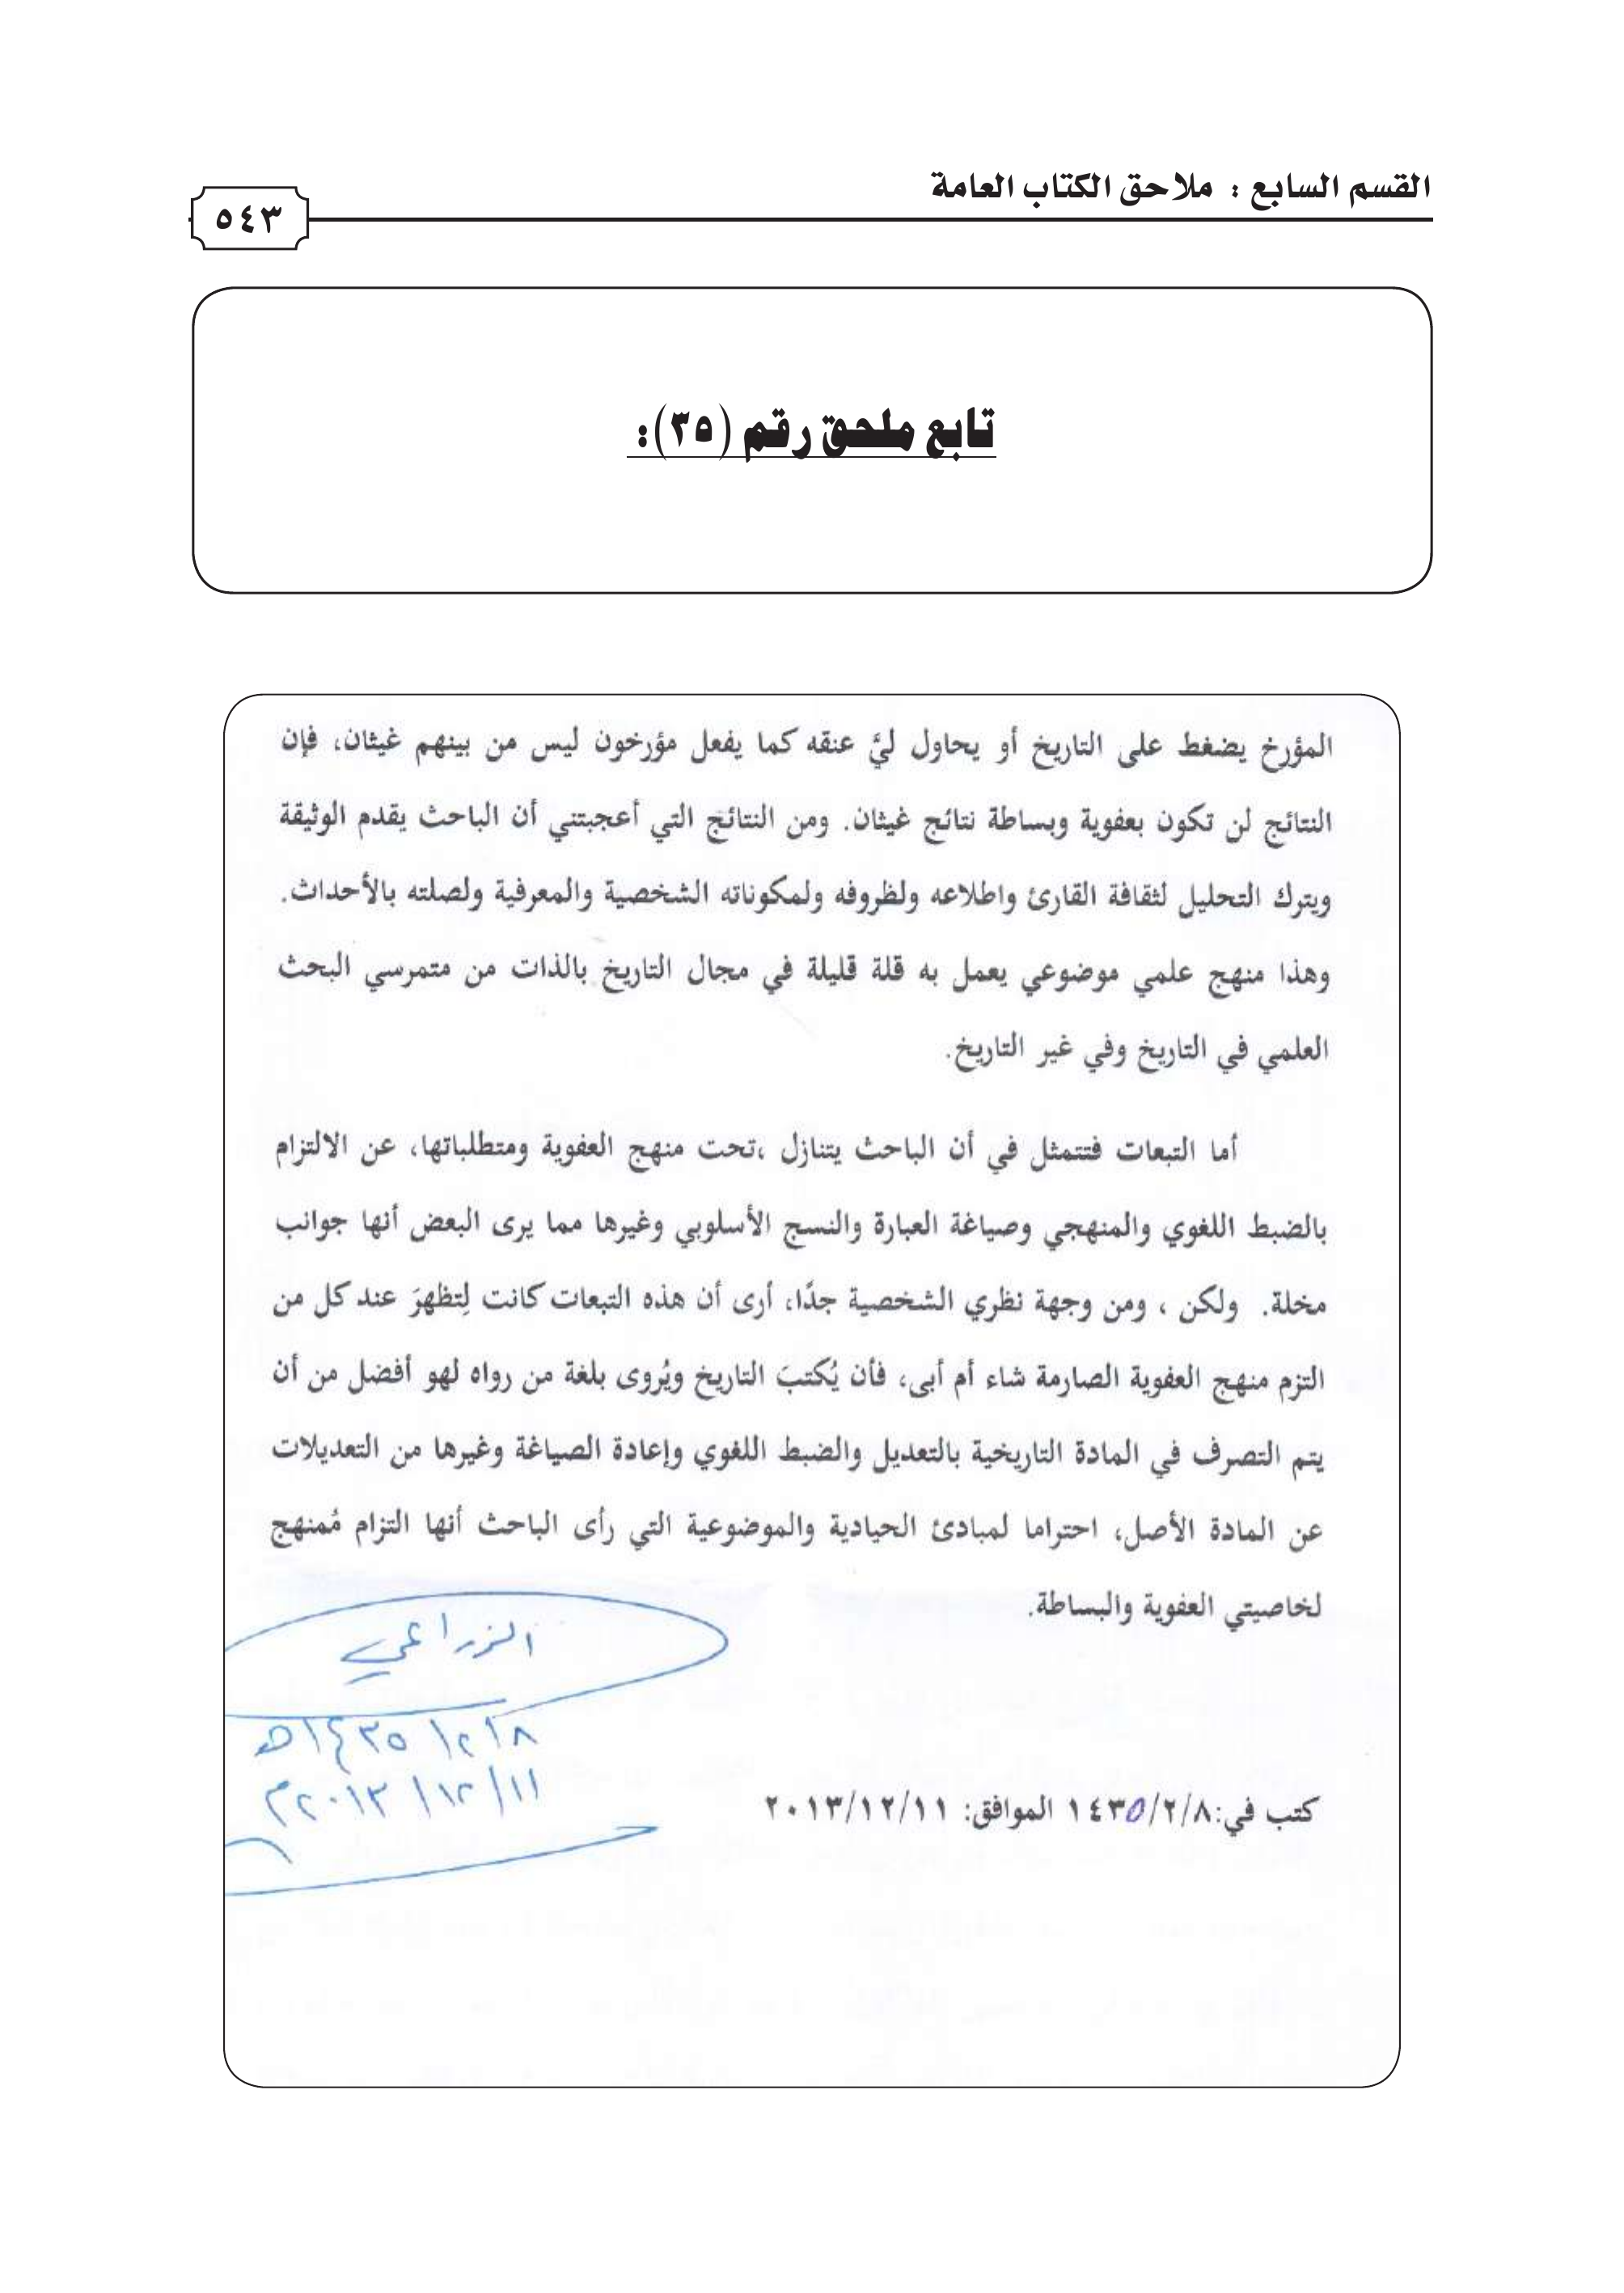 القسم السابع : ملاحق الكتاب العامة
٥٤٣
تابع ملحق رقم (٣٥):
المؤرخ يضغط على التاريخ أو يحاول ليَّ عنقه كما يفعل مؤرخون ليس من بينهم غيثان، فإن
النتائج لن تكون بعفوية وبساطة نتائج غيثان. ومن النتائج التي أعجبتني أن الباحث يقدم الوثيقة
ويترك التحليل لثقافة القارئ واطلاعه ولظروفه ولمكوناته الشخصية والمعرفية ولصلته بالأحداث.
وهذا منهج علمي موضوعي يعمل به قلة قليلة في مجال التاريخ بالذات من متمرسي البحث
العلمي في التاريخ وفي غير التاريخ.
أما التبعات فتتمثل في أن الباحث يتنازل ،تحت منهج العفوية ومتطلباتها، عن الالتزام
بالضبط اللغوي والمنهجي وصياغة العبارة والنسج الأسلوبي وغيرها مما يرى البعض أنها جوانب
مخلة. ولكن ، ومن وجهة نظري الشخصية جدًا، أرى أن هذه التبعات كانت لِتظهرَ عند كل من
التزم منهج العفوية الصارمة شاء أم أبى، فأن يُكتبَ التاريخ ويُروى بلغة من رواه لهو أفضل من أن
يتم التصرف في المادة التاريخية بالتعديل والضبط اللغوي وإعادة الصياغة وغيرها من التعديلات
عن المادة الأصل، احتراما لمبادئ الحيادية والموضوعية التي رأى الباحث أنها التزام مُمنهج
لخاصيتي العفوية والبساطة.
الزراعي
١٤٣٥/٢/٨هـ
٢٠١٣/١٢/١١م
كتب في:١٤٣٥/٢/٨ الموافق: ٢٠١٣/١٢/١١